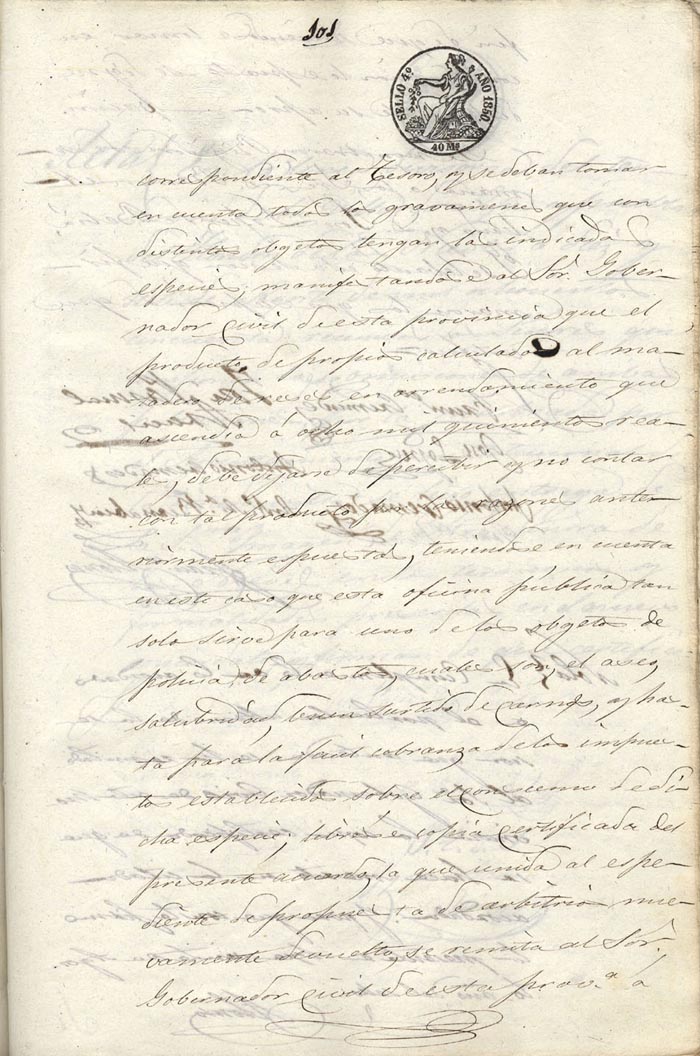 101
SELLO 4º AÑO 1860.
40 Ms
correspondiente al Tesoro, y se deban tomar
en cuenta todos los gravamenes que con
distintos objetos tengan la indicada
especie; manifestandose al Sór. Gober-
nador civil de esta provincia que el
producto de propios calculado al ma-
tadero de reses en arrendamiento que
ascendia á ocho mil quinientos rea-
les, debe dejarse de percibir y no contar
con tal producto por las razones ante-
riormente espuestas, teniendose en cuenta
en este caso que esta oficina publica tan
solo sirve para uno de los objetos de
policia de abastos, cuales son, el aseo,
salubridad, buen surtido de carnes, y has-
ta para la facil cobranza de los impues-
tos establecidos sobre el consumo de di-
cha especie; librese copia certificada del
presente acuerdo, la que unida al espe-
diente de propuesta de arbitrios nue-
vamente devuelto, se remita al Sór.
Gobernador Civil de esta prov.ª á